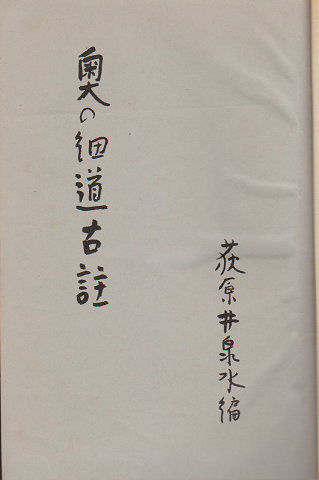 奥の細道古註
荻原井泉水編